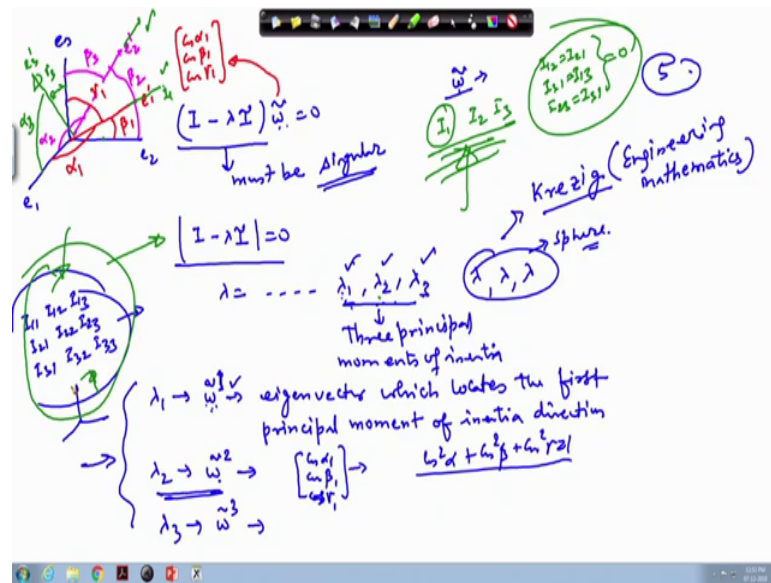 e3
e1
e2
α1
β1
γ1
α2
β2
β3
α3
γ3
e'1
e'2
e'3
[cosα1
cosβ1
cosγ1]
(I - λI) ω̃ = 0
must be singular
ω̃ →
I1 I2 I3
I12=I21
I31=I13
I23=I31
} =0
5
Krezig (Engineering mathematics)
|I - λI| = 0
λ = ---- λ1, λ2, λ3
λ, λ, λ → sphere.
Three principal
moments of inertia
I11 I12 I13
I21 I22 I23
I31 I32 I33
λ1 → ω̃1 → eigenvector which locates the first
principal moment of inertia direction
λ2 → ω̃2 → [cosα1
cosβ1
cosγ1] → cos²α + cos²β + cos²γ=1
λ3 → ω̃3 →